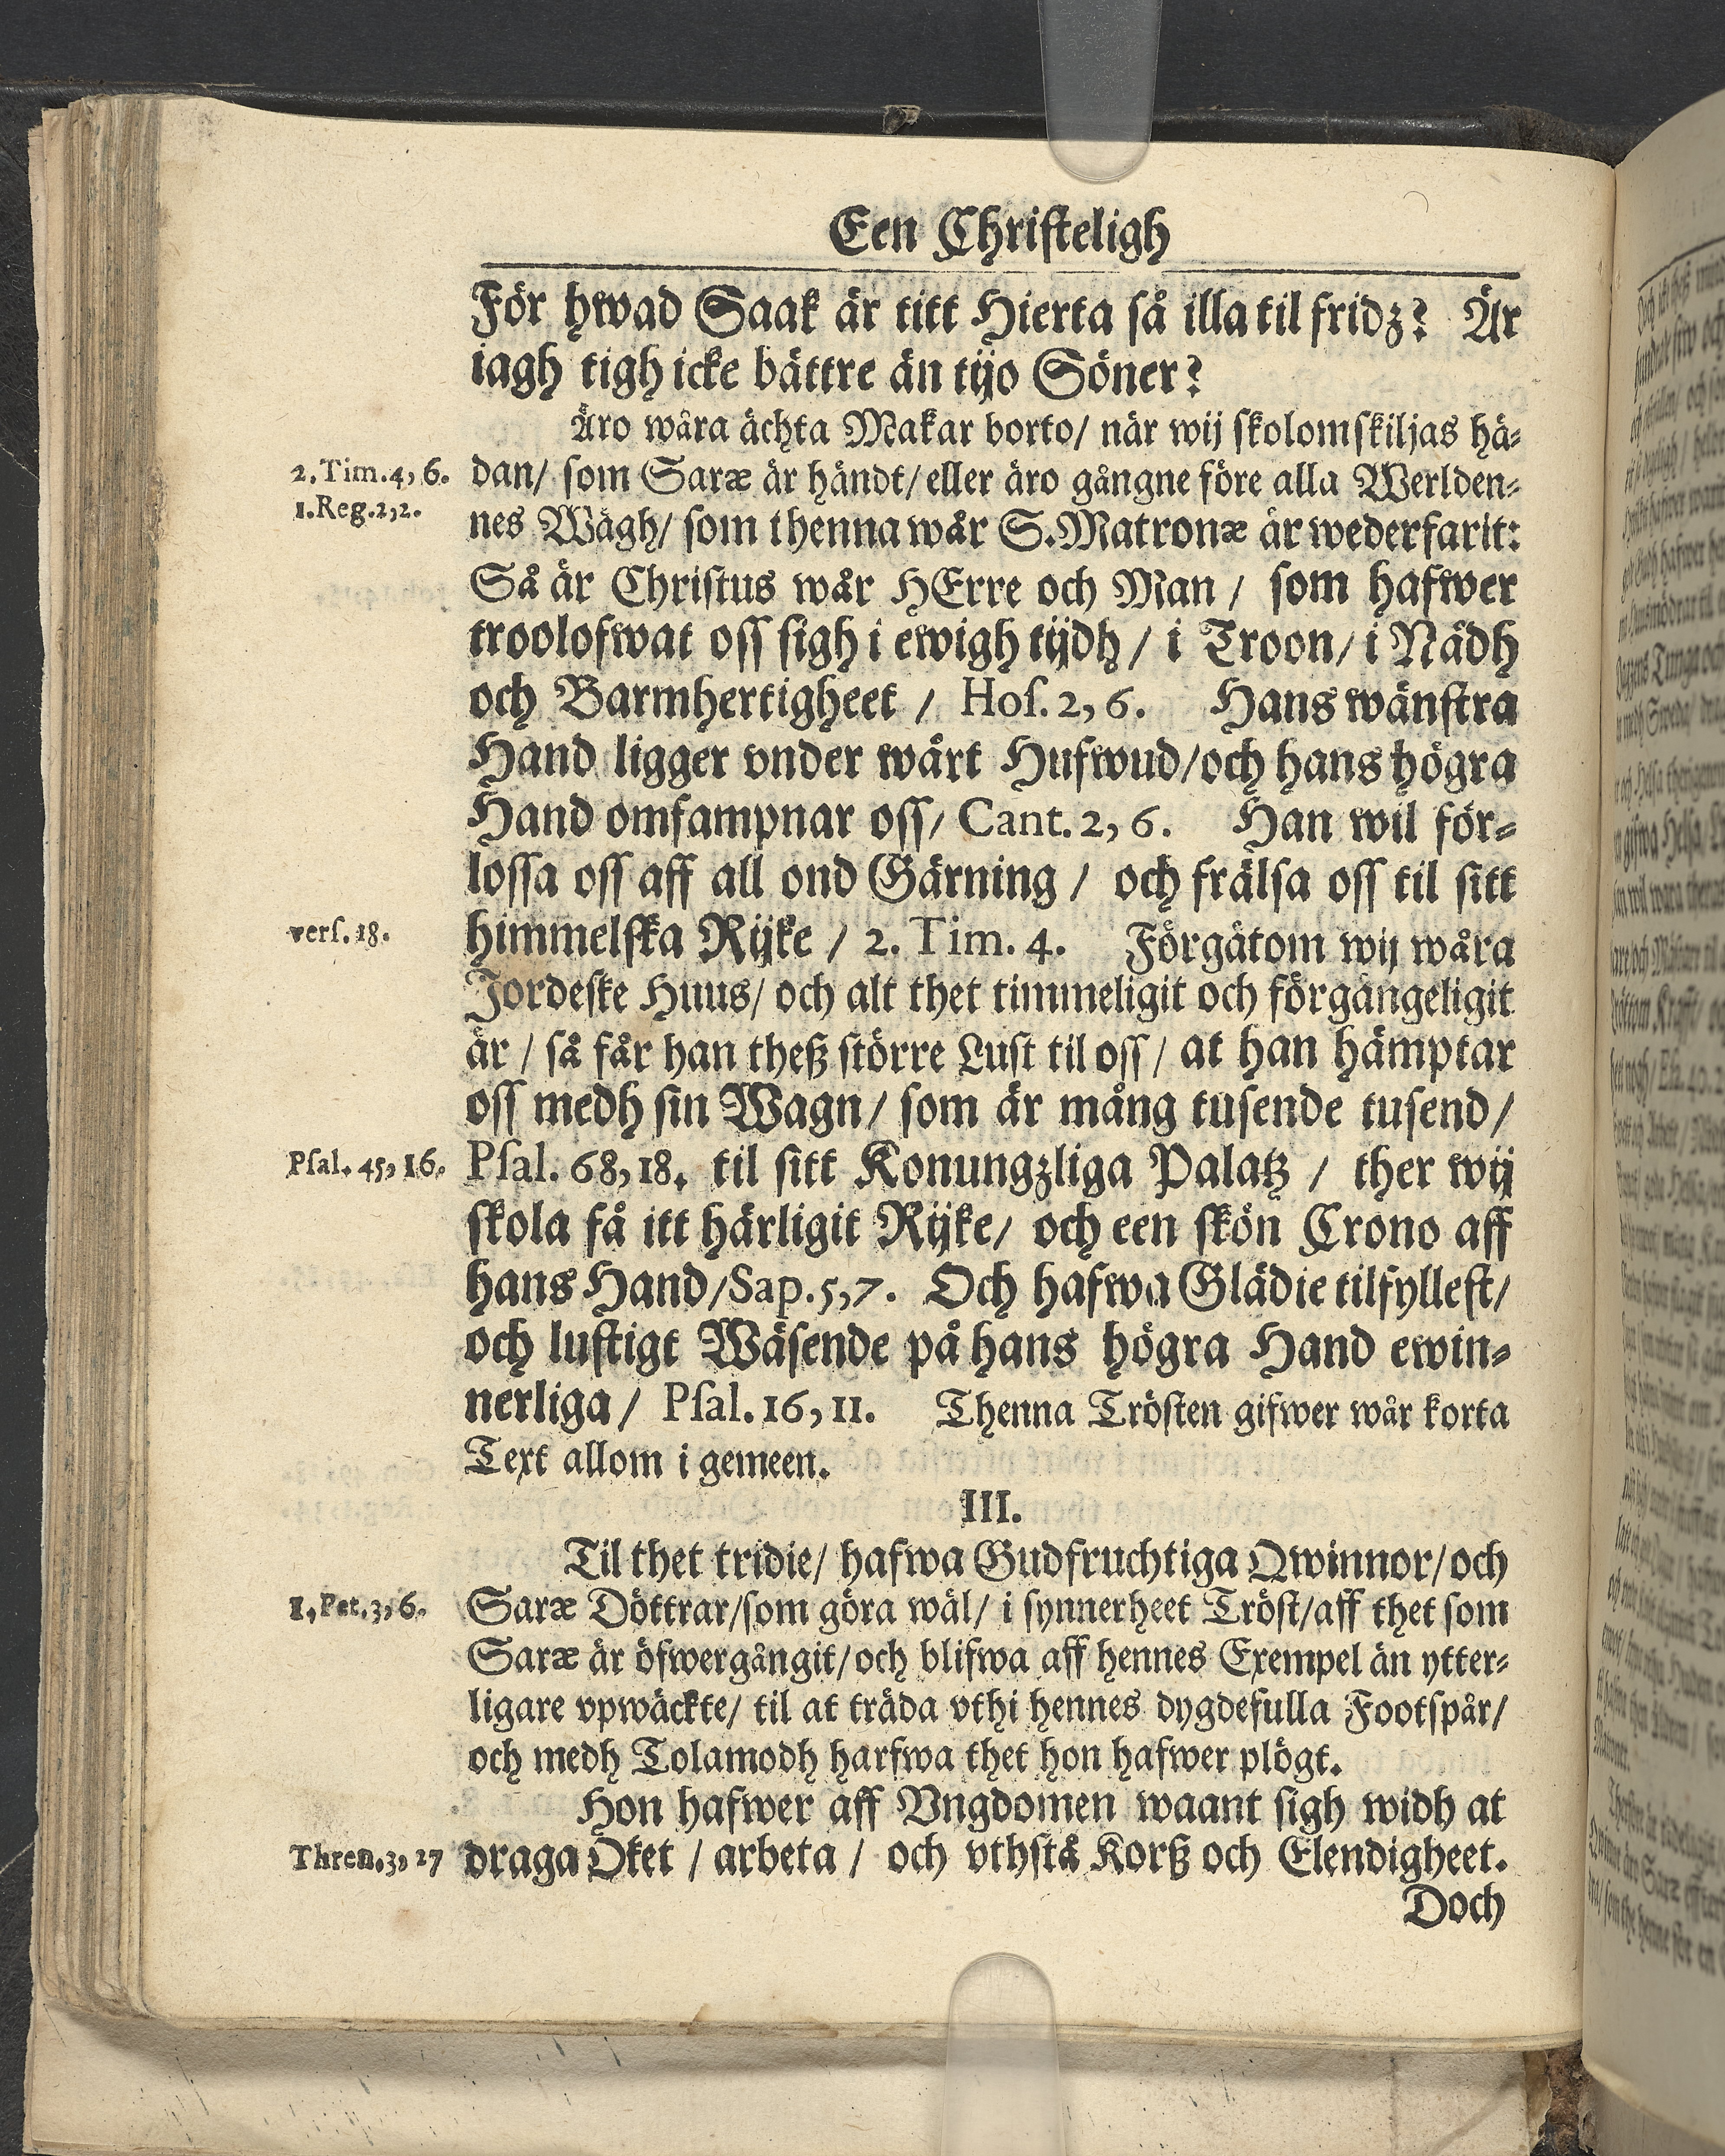 Een Christeligh
För hwad Saak är titt Hierta så illa til fridz? Är
iagh tigh icke bättre än tijo Söner?
Äro wåra ächta Makar borto/ når wij skolom skiljas hä-
2. Tim. 4, 6.
dan/ som Saræ är händt/ eller äro gångne före alla Werlden-
1. Reg. 2, 2.
nes Wägh/ som thenna wår S. Matronæ är wederfarit:
Så är Christus wår HErre och Man / som hafwer
troolofwat oss sigh i ewigh tijdh / i Troon/ i Nådh
och Barmhertigheet / Hos. 2, 6. Hans wänstra
Hand ligger vnder wårt Hufwud/ och hans högra
Hand omfampnar oss/ Cant. 2, 6. Han wil för-
lossa oss aff all ond Gärning / och frälsa oss til sitt
vers. 18.
himmelska Rijke / 2. Tim. 4. Förgätom wij wåra
Jordeske Huus/ och alt thet timmeligit och förgängeligit
är / så får han theß större Lust til oss / at han hämptar
oss medh sin Wagn/ som är mång tusende tusend/
Psal. 45, 16.
Psal. 68, 18. til sitt Konungzliga Palatz / ther wij
skola få itt härligit Rijke/ och een skön Crono aff
hans Hand/ Sap. 5, 7. Och hafwa Glädie tilfyllest/
och lustigt Wäsende på hans högra Hand ewin-
nerliga / Psal. 16, 11. Thenna Trösten gifwer wår korta
Text allom i gemeen.
III.
Til thet tridie/ hafwa Gudfruchtiga Qwinnor/ och
1. Pet. 3, 6.
Saræ Döttrar/ som göra wäl/ i synnerheet Tröst/ aff thet som
Saræ är öfwergångit/ och blifwa aff hennes Exempel än ytter-
ligare vpwäckte/ til at träda vthi hennes dygdefulla Footspår/
och medh Tolamodh harfwa thet hon hafwer plögt.
Hon hafwer aff Vngdomen waant sigh widh at
Thren. 3, 27
draga Oket / arbeta / och vthstå Korß och Elendigheet.
Doch